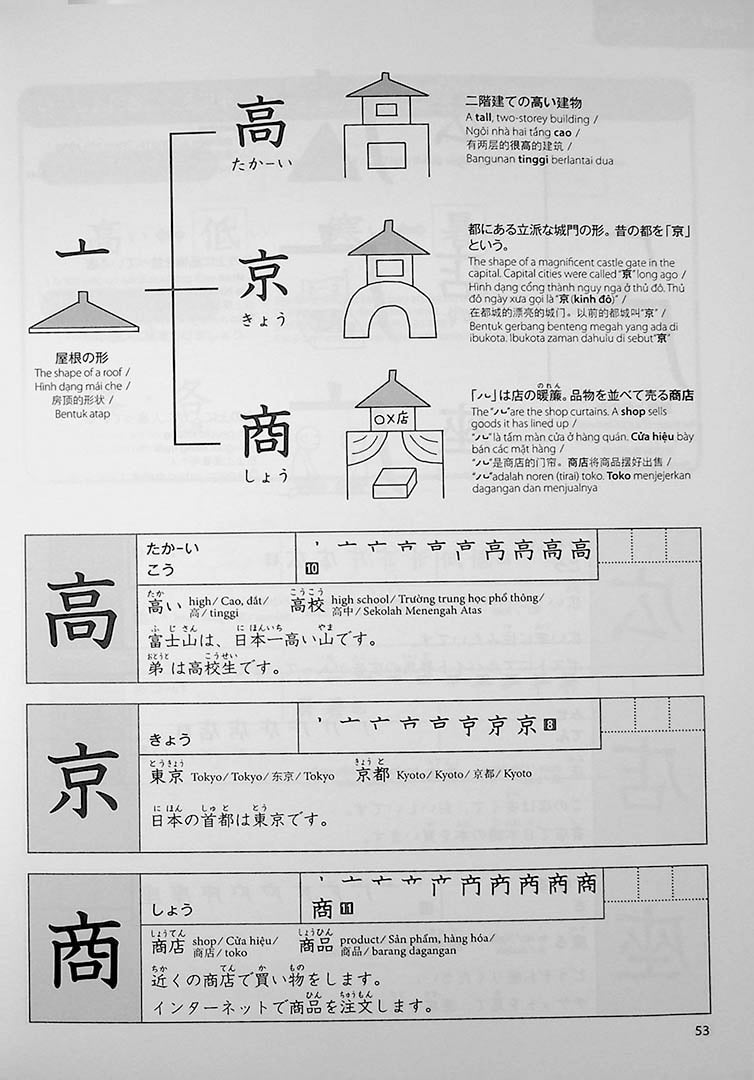 高
たかーい
二階建ての高い建物
A tall, two-storey building /
Ngôi nhà hai tầng cao /
有两层的很高的建筑 /
Bangunan tinggi berlantai dua
亠
屋根の形
The shape of a roof /
Hình dạng mái che /
房顶的形状 /
Bentuk atap
京
きょう
都にある立派な城門の形。昔の都を「京」
という。
The shape of a magnificent castle gate in the
capital. Capital cities were called “京” long ago /
Hình dạng cổng thành nguy nga ở thủ đô. Thủ
đô ngày xưa gọi là “京 (kinh đô)” /
在都城的漂亮的城门。以前的都城叫“京” /
Bentuk gerbang benteng megah yang ada di
ibukota. Ibukota zaman dahulu di sebut“京”
商
しょう
○×店
のれん
「ハ」は店の暖簾。品物を並べて売る商店
The “ハ”are the shop curtains. A shop sells
goods it has lined up /
“ハ”là tấm màn cửa ở hàng quán. Cửa hiệu bày
bán các mặt hàng /
“ハ”是商店的门帘。商店将商品摆好出售 /
“ハ”adalah noren (tirai) toko. Toko menjejerkan
dagangan dan menjualnya
高
たかーい
こう
10
たか
高い high / Cao, đắt /
高 / tinggi
こうこう
高校 high school / Trường trung học phổ thông /
高中 / Sekolah Menengah Atas
ふじさん にほんいち やま
富士山は、日本一高い山です。
おとうと こうせい
弟は高校生です。
京
きょう
8
とうきょう
東京 Tokyo / Tokyo / 东京 / Tokyo
きょうと
京都 Kyoto / Kyoto / 京都 / Kyoto
にほん しゅと とう
日本の首都は東京です。
商
しょう
商 11
しょうてん
商店 shop / Cửa hiệu /
商店 / toko
しょうひん
商品 product / Sản phẩm, hàng hóa /
商品 / barang dagangan
ちか てん か もの
近くの商店で買い物をします。
ひん ちゅうもん
インターネットで商品を注文します。
53